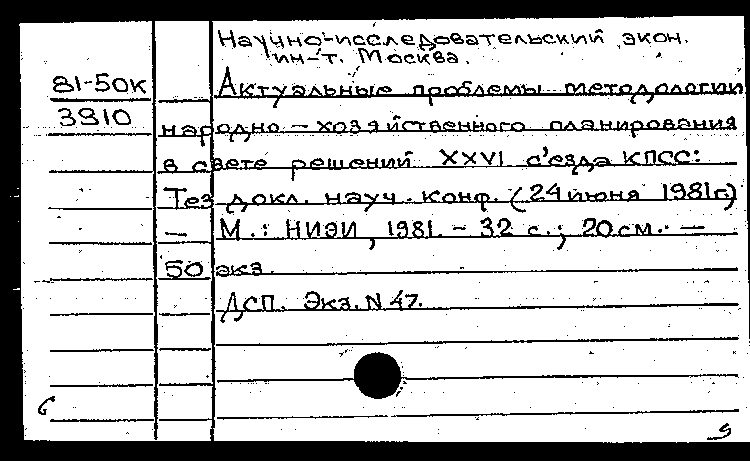 Научно-исследовательский экон.
ин-т. Москва.
81-50к Актуальные проблемы методологии
3910 народно-хозяйственного планирования
в свете решений XXVI с'езда КПСС:
Тез докл. науч. конф. (24 июня 1981г.)
— М.: НИЭИ, 1981. - 32 с.; 20см. —
50 экз.
ДСП. Экз. N 47.